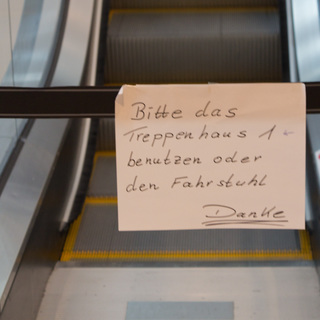 Bitte das
Treppenhaus 1
benutzen oder
den Fahrstuhl
Danke